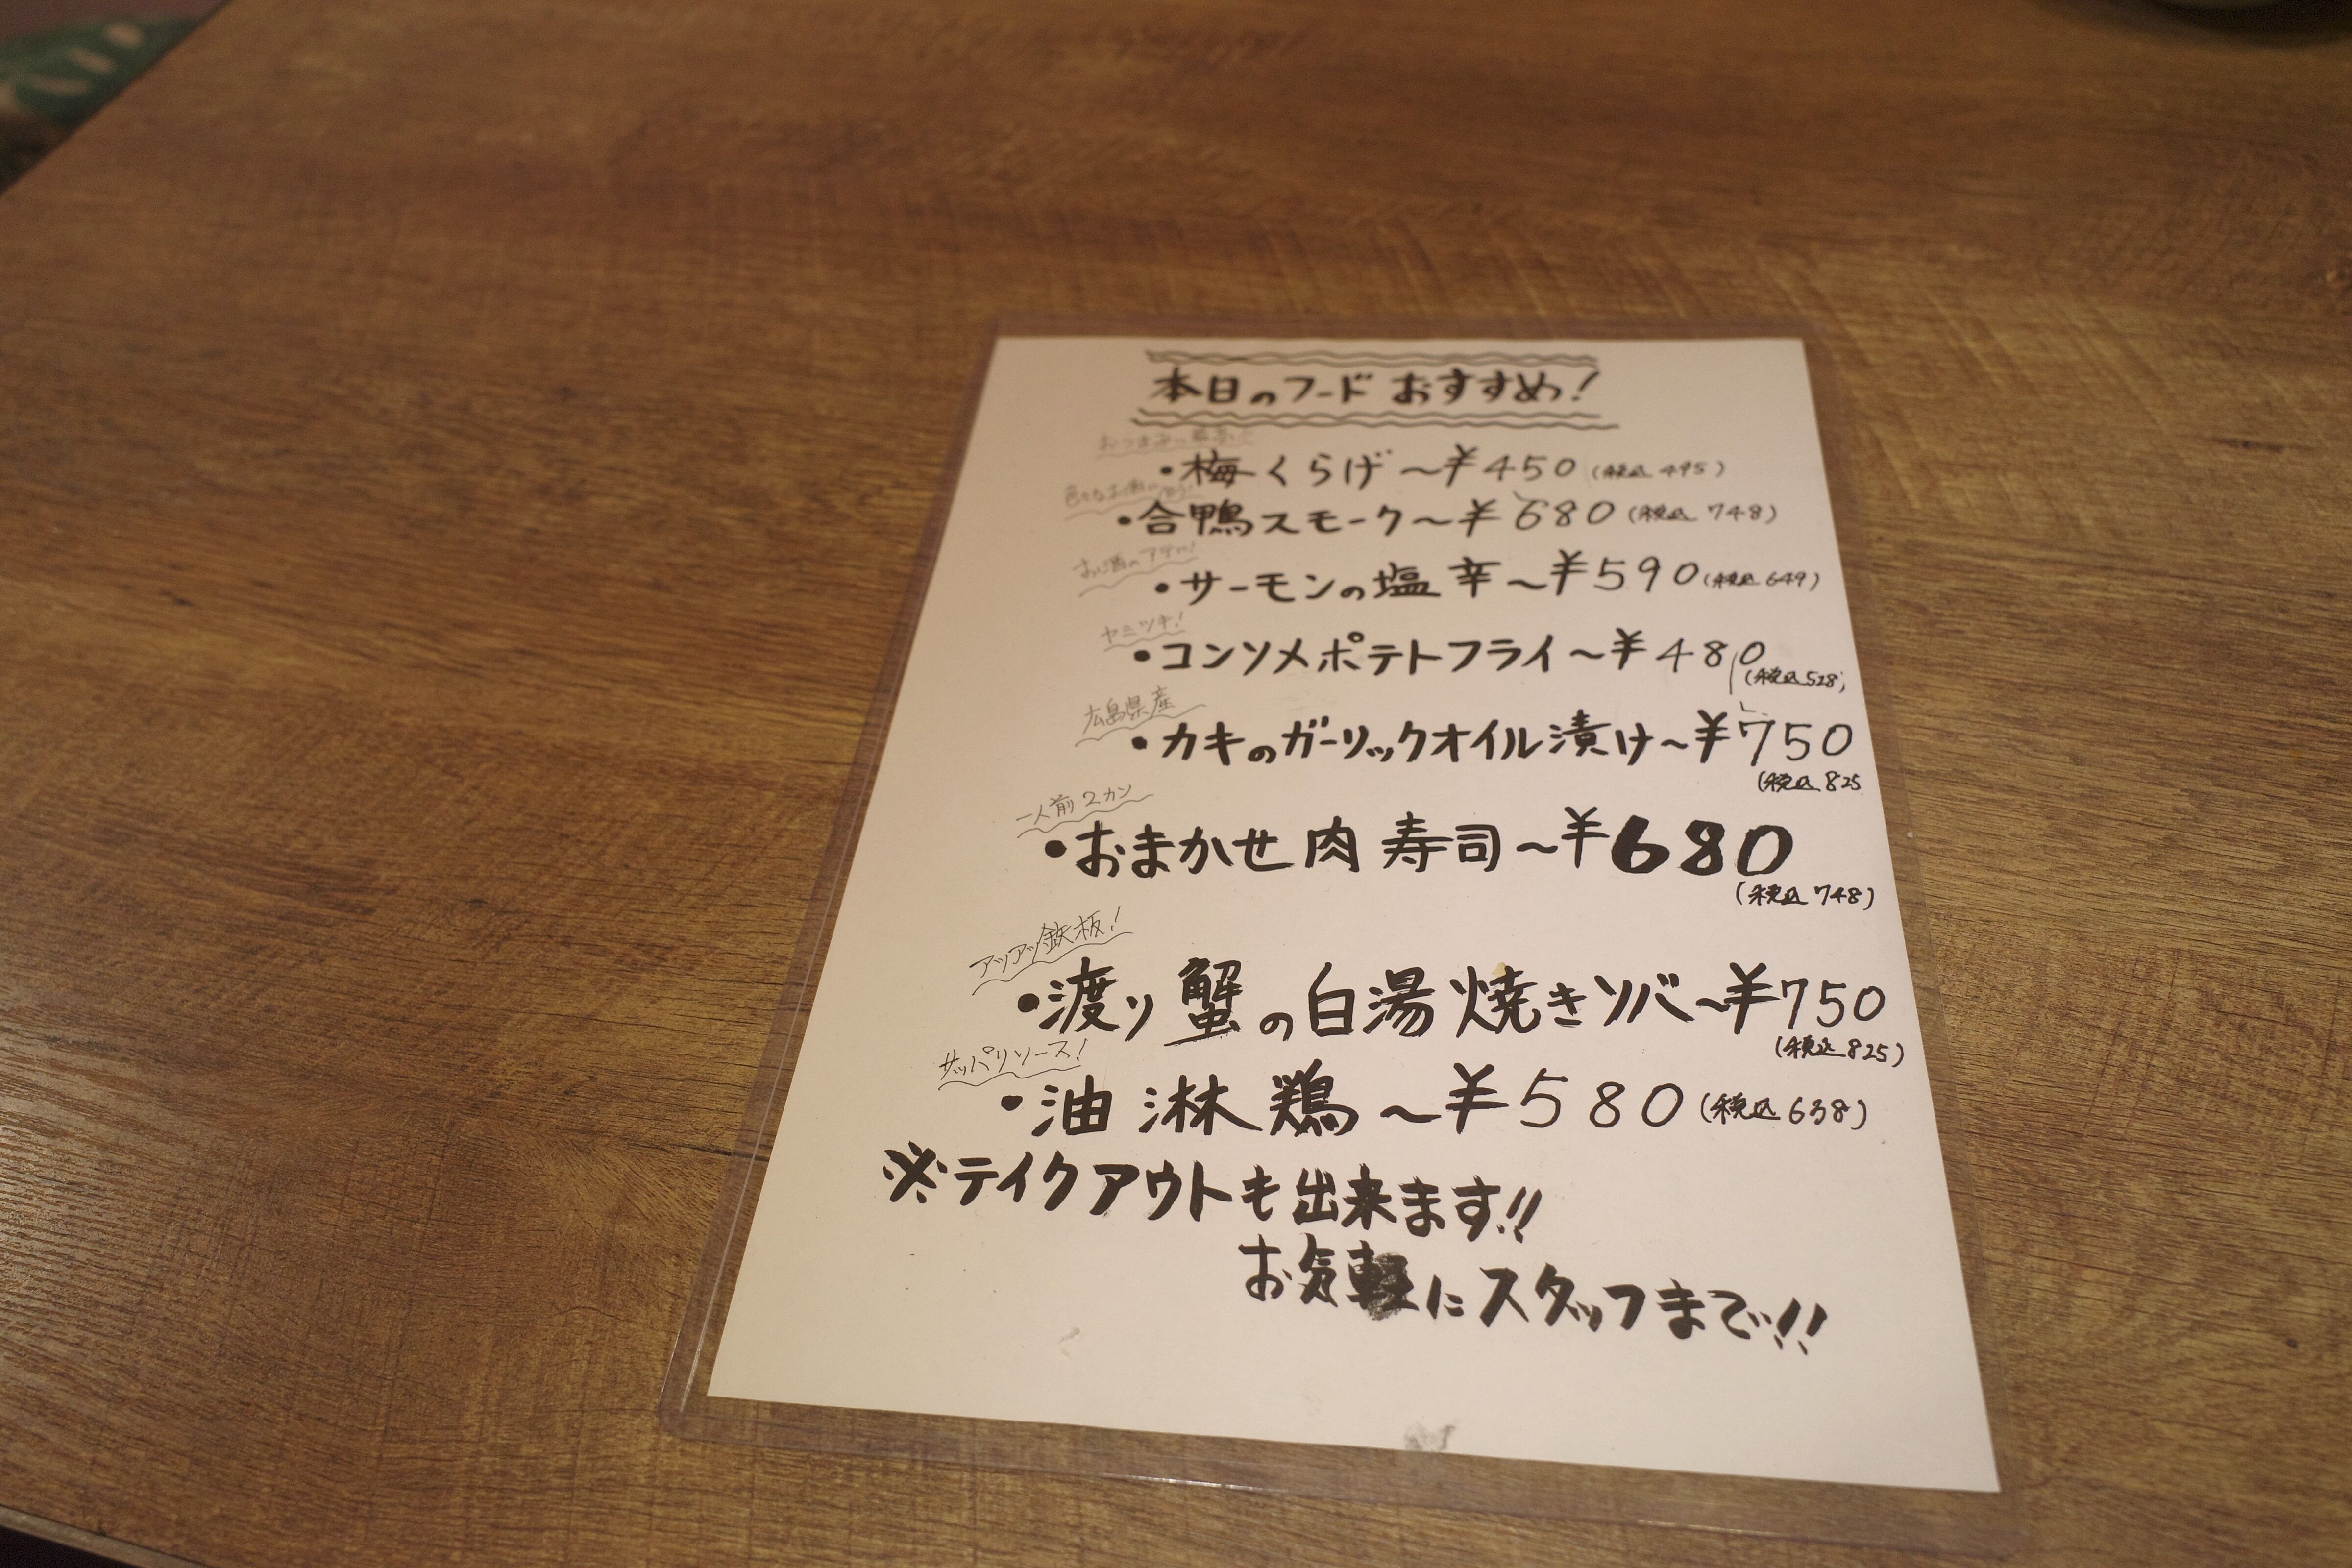 本日のフード おすすめ!
・梅くらげ～¥450(税込495)
・合鴨スモーク～¥680(税込748)
お酒のアテに!
・サーモンの塩辛～¥590(税込649)
ヤミツキ!
・コンソメポテトフライ～¥480
(税込528)
広島県産
・カキのガーリックオイル漬け～¥750
(税込825
一人前2カン
・おまかせ肉寿司～¥680
(税込748)
アツアツ鉄板!
・渡り蟹の白湯焼きソバ～¥750
(税込825)
サッパリソース!
・油淋鶏～¥580(税込638)
※テイクアウトも出来ます!!
お気軽にスタッフまで!!